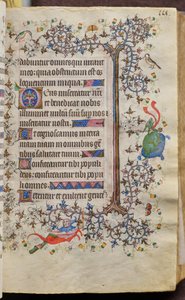 dabuntur omnes qui iurant
in eo: quia obstructum est os
loquentium iniqua.
Deus misereatur nostri
et benedicat nobis
illuminet vultū suū sup nos
et misereatur nostri
Ut cognoscamus in terra
viam tuam in omnibus gen
tibus salutare tuum
Confiteantur tibi populi
deus confiteantur tibi popu
li omnes
Letentur et exultent gentes